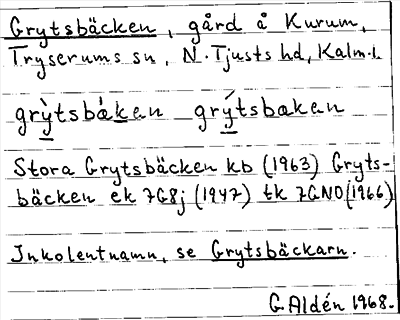 Grytsbäcken, gård å Kurum,
Tryserums sn, N. Tjusts hd, Kalm. l.
grỳtsbàken grýtsbaken
Stora Grytsbäcken kb (1963) Gryts-
bäcken ek 7G8j (1947) tk 7GNO (1966)
Inkolentnamn, se Grytsbäckarn.
G Aldén 1968.